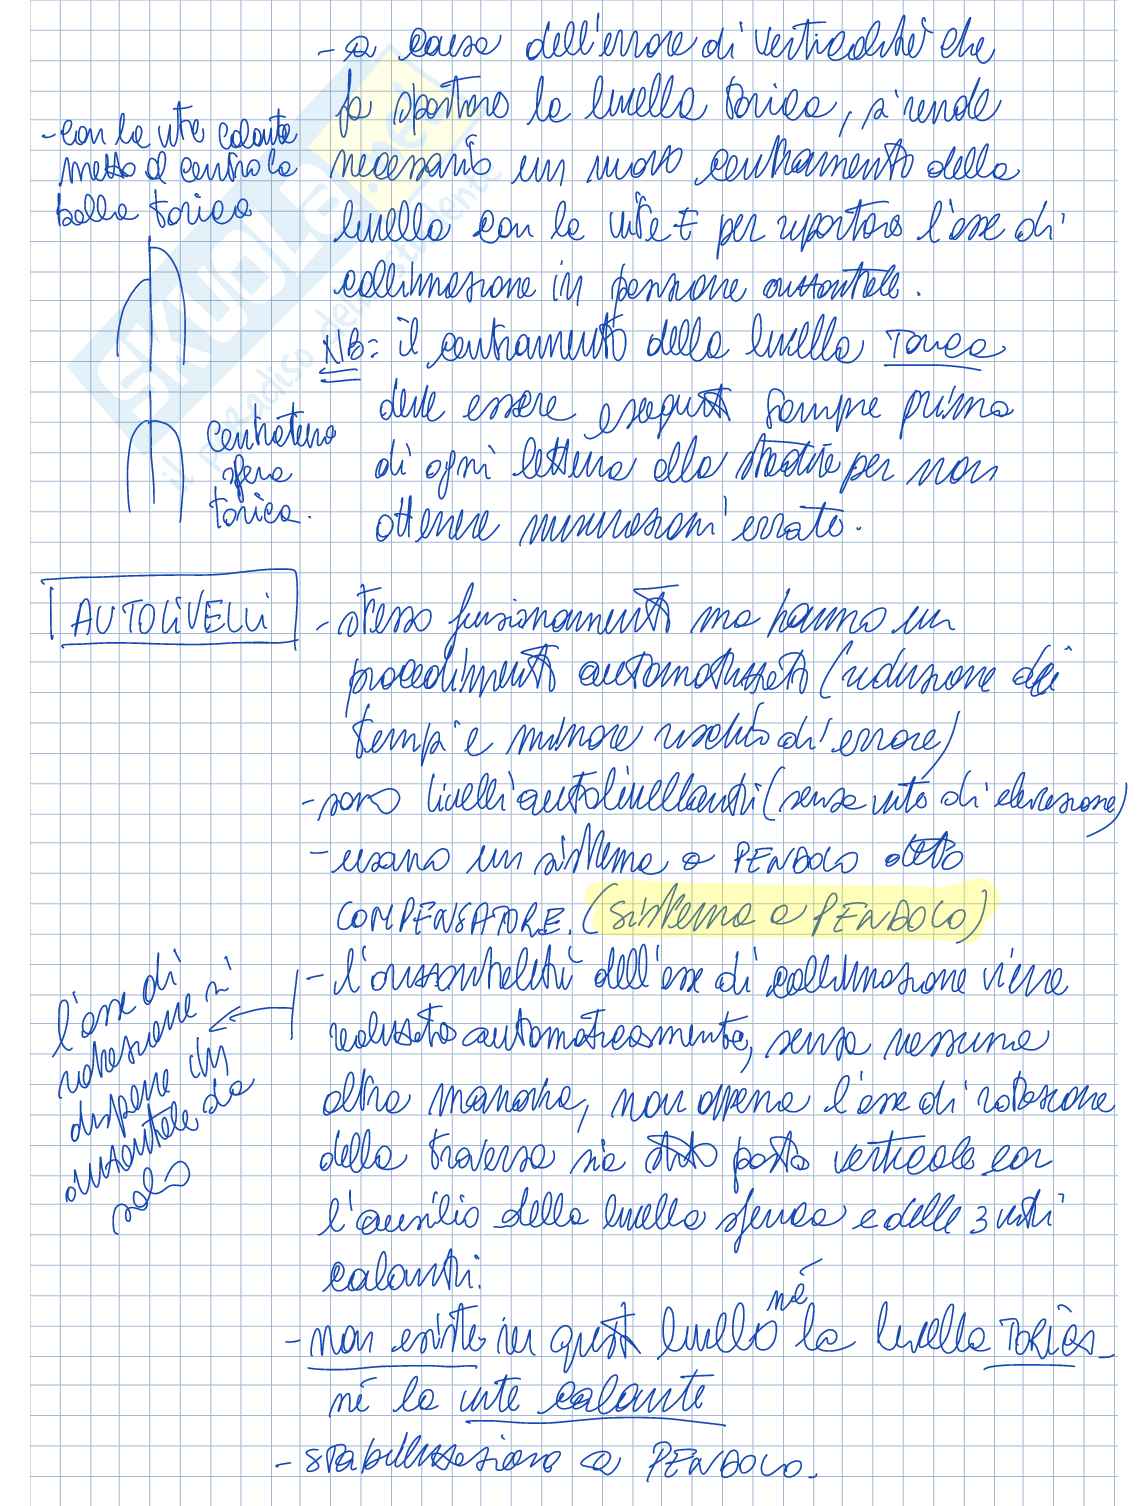 - a causa dell'errore di verticalità che
fa spostare la livella torica, si rende
necessario un nuovo centramento della
livella con la vite E per riportare l'asse di
collimazione in posizione orizzontale.
NB: il centramento della livella TORICA
deve essere eseguito sempre prima
di ogni lettura alla stadia per non
ottenere misurazioni errate.
- con la vite calante
metto al centro la
bolla torica
centratura
sfera
torica.
AUTOLIVELLI
- stesso funzionamento ma hanno un
procedimento automatizzato (riduzione dei
tempi e minore rischio di errore)
- sono livelli autolivellanti (senza vite di elevazione)
- usano un sistema a PENDOLO detto
COMPENSATORE. (sistema a PENDOLO)
- l'orizzontalità dell'asse di collimazione viene
realizzata automaticamente, senza nessuna
altra manovra, non appena l'asse di rotazione
della traversa sia stato posto verticale con
l'ausilio della livella sferica e delle 3 viti
calanti.
l'asse di
rotazione si
dispone in
orizzontale da
solo
- non esiste in questo livello né la livella TORICA
né la vite calante
- stabilizzazione a PENDOLO.
SKUOLA.net
il paradiso dello studente